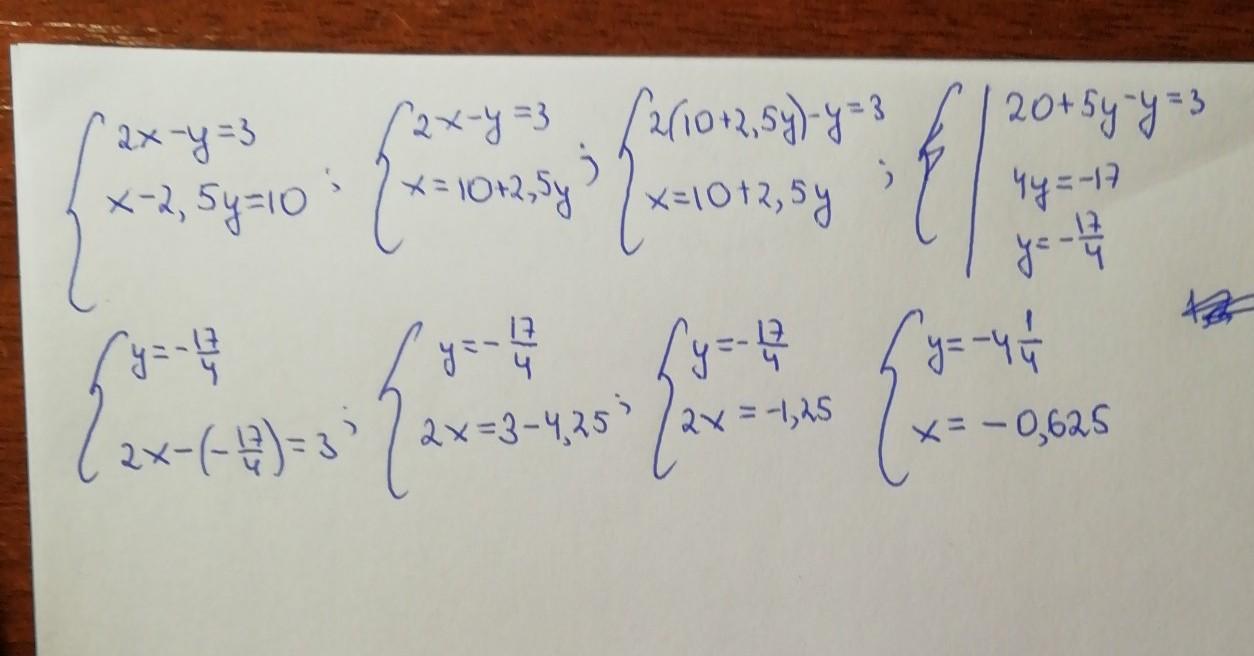 { 2x-y=3
x-2,5y=10 ;
{ 2x-y=3
x=10+2,5y ;
{ 2(10+2,5y)-y=3
x=10+2,5y ;
{ | 20+5y-y=3
4y=-17
y=-17/4
{ y=-17/4
2x-(-17/4)=3 ;
{ y=-17/4
2x=3-4,25 ;
{ y=-17/4
2x=-1,25
{ y=-4 1/4
x=-0,625